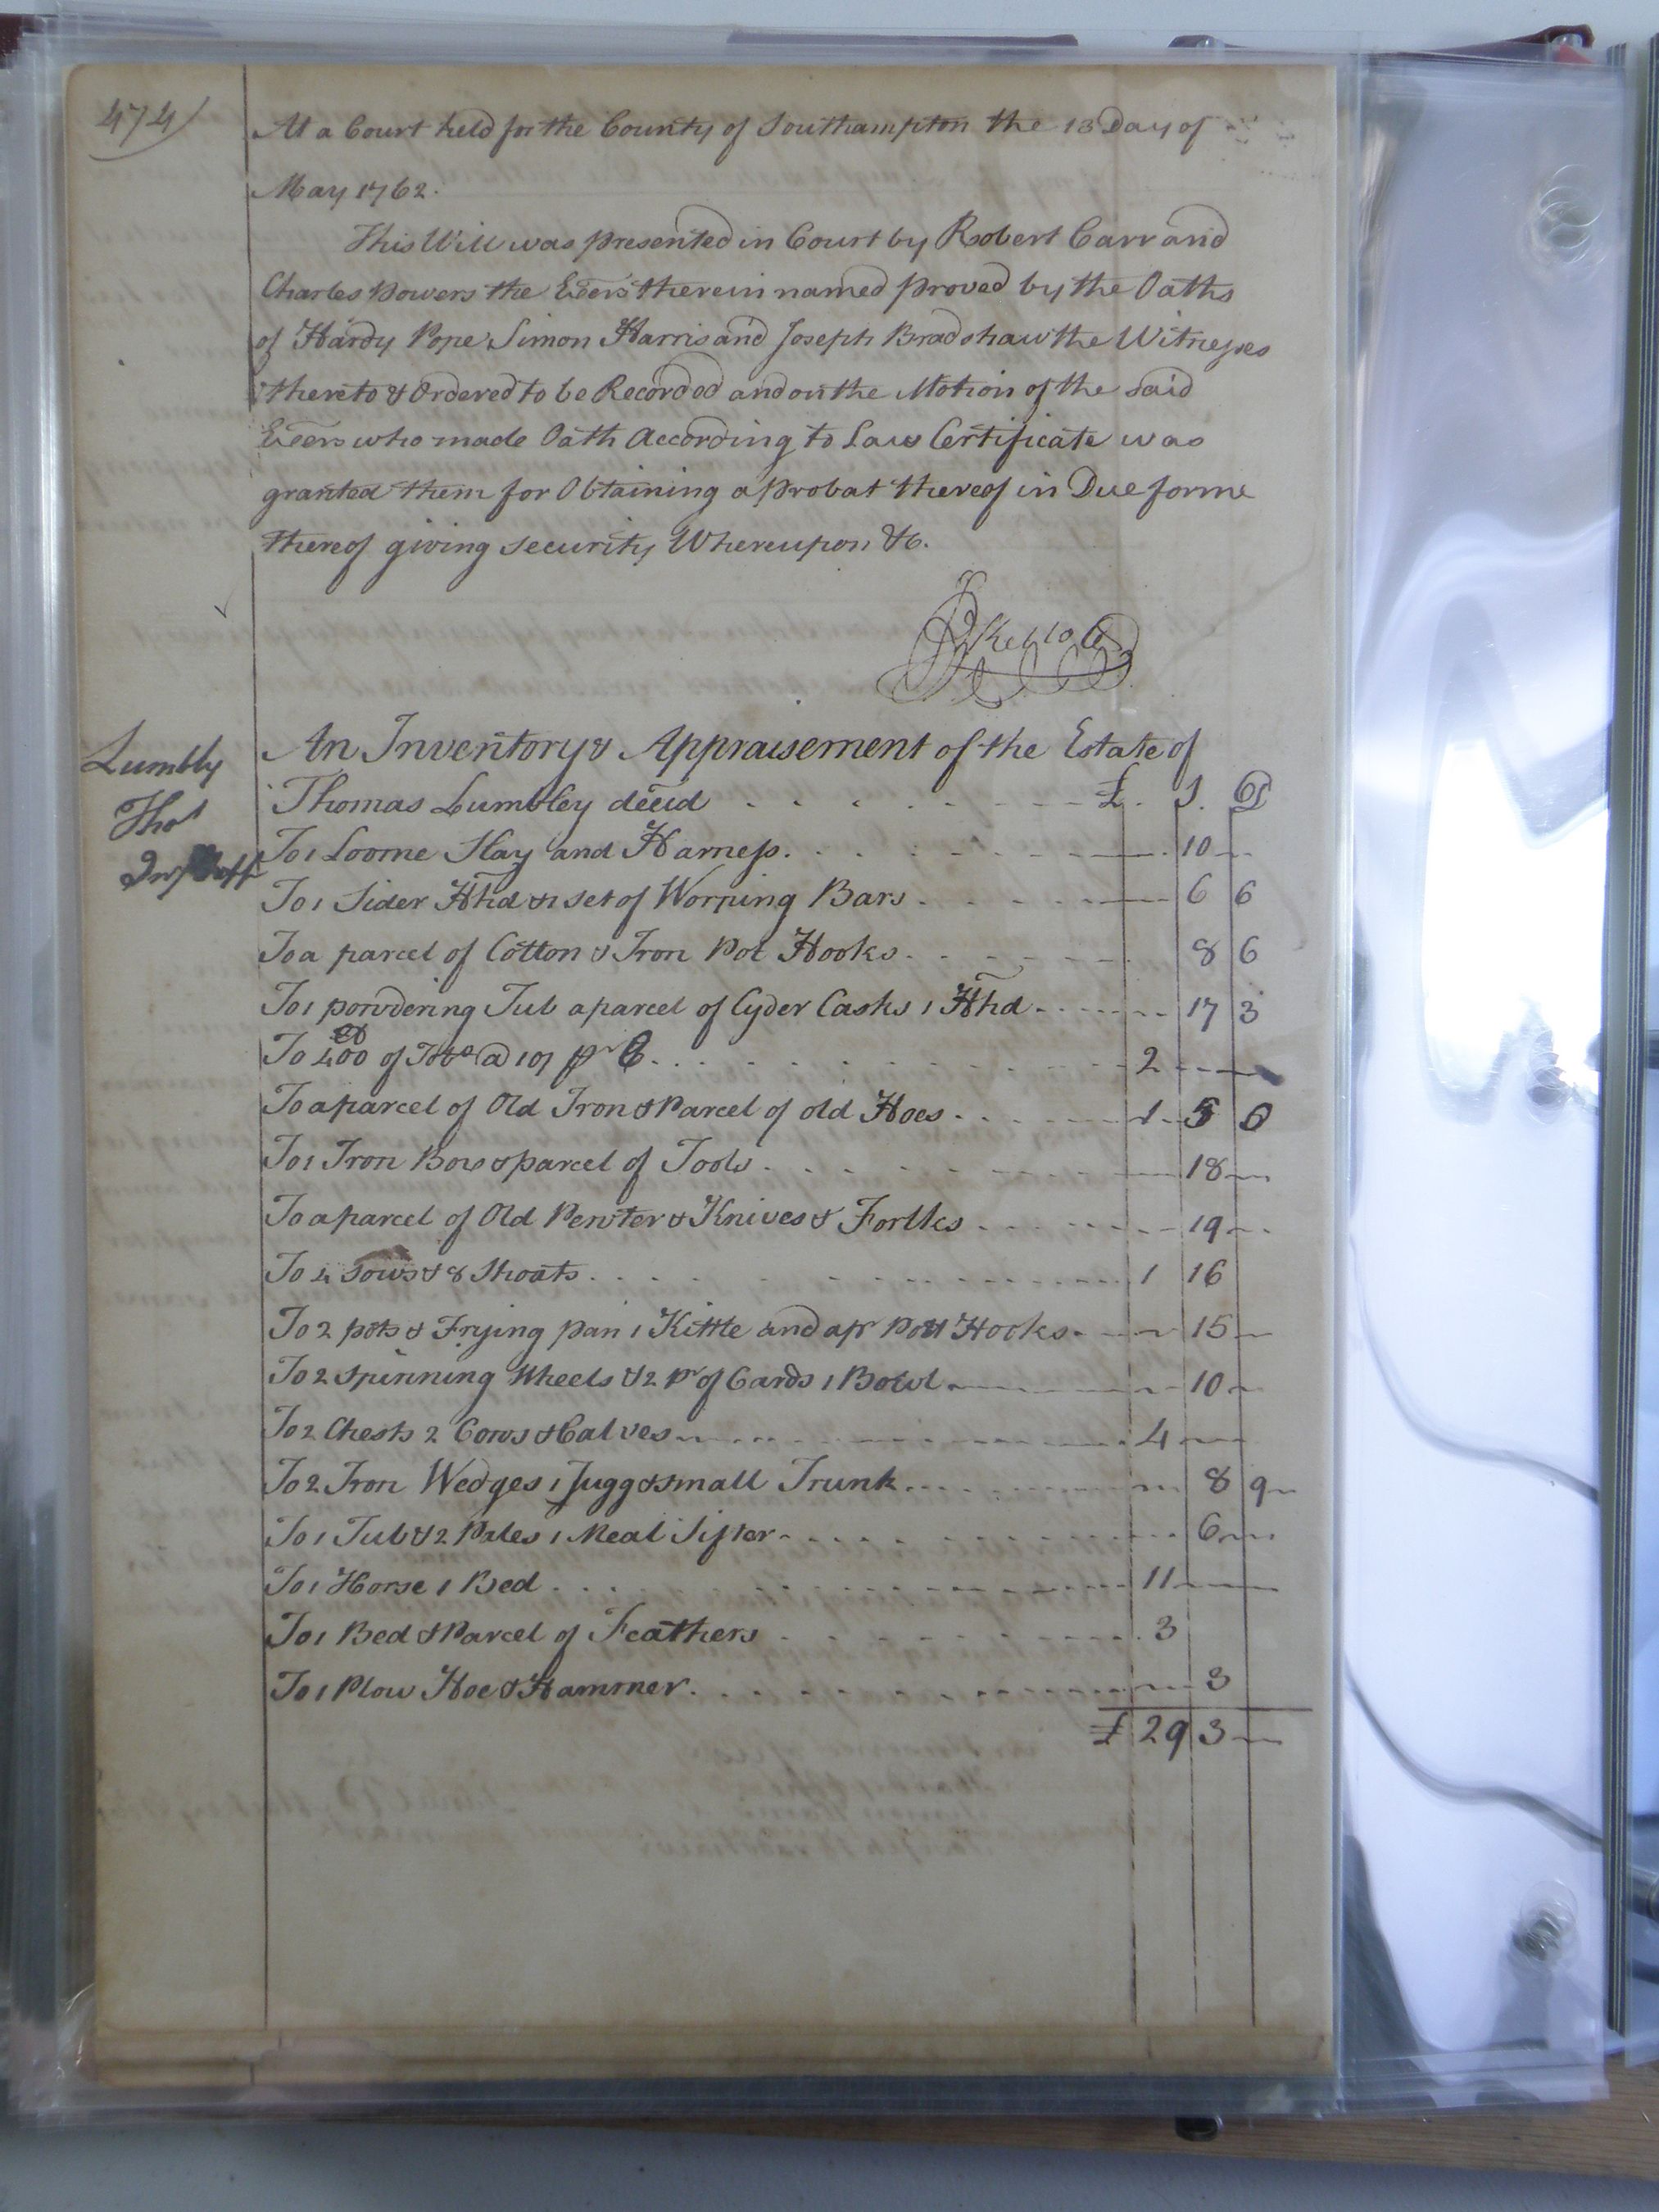 474
At a Court held for the County of Southampton the 13 Day of
May 1762.
This Will was presented in Court by Robert Carr and
Charles Powers the Exers therein named proved by the Oaths
of Hardy Pope Simon Harris and Joseph Bradshaw the Witnesses
thereto & Ordered to be Recorded and on the Motion of the said
Exers who made Oath According to Law Certificate was
granted them for Obtaining a probat thereof in Due forme
thereof giving security Whereupon &c.
Lumbly
Thos
An Inventory & Appraisement of the Estate of
Thomas Lumbley decd £. S. D
To 1 Loome Slay and Harness. 10
To 1 Sider Hhd & 1 set of Worping Bars 6 6
To a parcel of Cotton & Iron Pot Hooks 8 6
To 1 powdering Tub a parcel of Cyder Casks 1 Hhd 17 3
To 400 of Tobo @ 10/ pr C. 2
To a parcel of Old Iron & Parcel of old Hoes 1 5 6
To 1 Iron Box & parcel of Tools 18
To a parcel of Old Pewter & Knives & Forlks 19
To 4 Sows & 8 Shoats 1 16
To 2 pots & Frying pan 1 Kittle and a pr Pott Hooks 15
To 2 Spinning Wheels & 2 pr of Cards 1 Bowl 10
To 2 Chests 2 Cows & Calves 4
To 2 Iron Wedges 1 Jugg & small Trunk 8 9
To 1 Tub & 2 Pales 1 Meal Sifter 6
To 1 Horse 1 Bed 11
To 1 Bed & Parcel of Feathers 3
To 1 Plow Hoe & Hammer. 3
£ 29 3